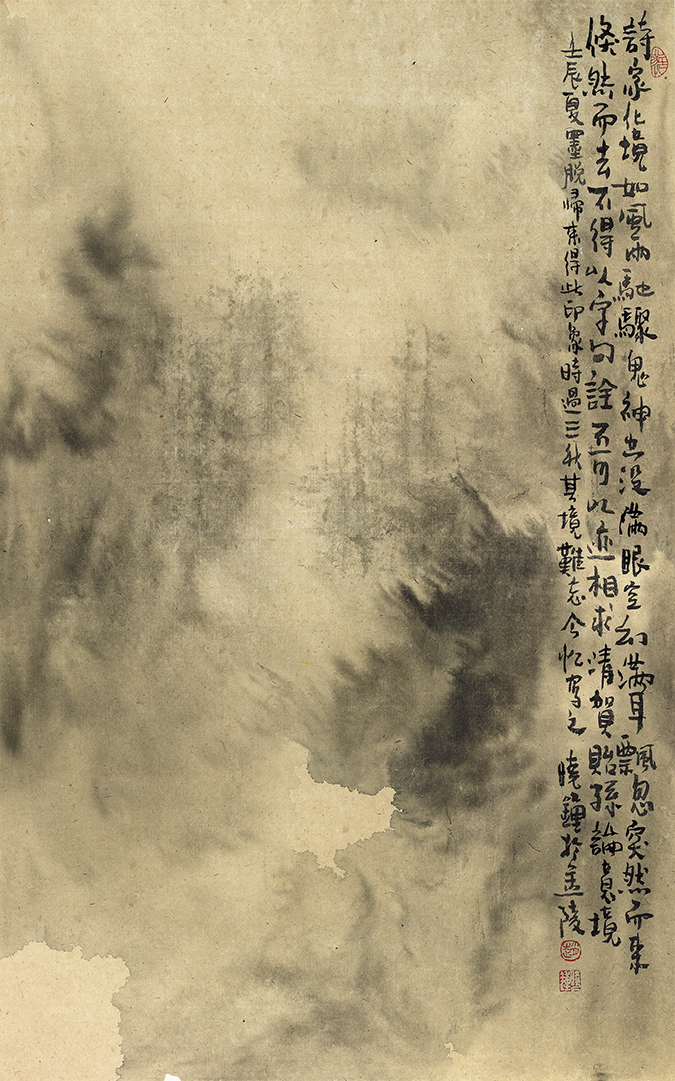 詩家化境如風雨馳驟鬼神出没滿眼空幻滿耳飄忽突然而來
倏然而去不得以字句詮不可以迹相求清賀貽孫論意境
壬辰夏墨脱歸來得此印象時過三秋其境難忘今憶寫之 曉鐘於金陵